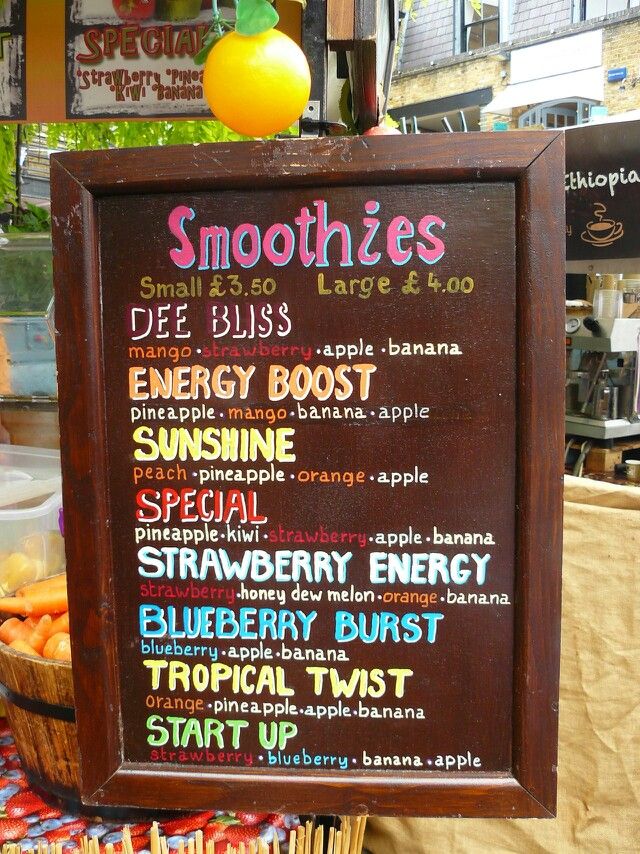 SPECIAL
Strawberry Pinea
Kiwi Banana
Ethiopia
Smoothies
Small £3.50 Large £4.00
DEE BLISS
mango • strawberry • apple • banana
ENERGY BOOST
pineapple • mango • banana • apple
SUNSHINE
peach • pineapple • orange • apple
SPECIAL
pineapple • kiwi • strawberry • apple • banana
STRAWBERRY ENERGY
strawberry • honey dew melon • orange • banana
BLUEBERRY BURST
blueberry • apple • banana
TROPICAL TWIST
orange • pineapple • apple • banana
START UP
strawberry • blueberry • banana • apple